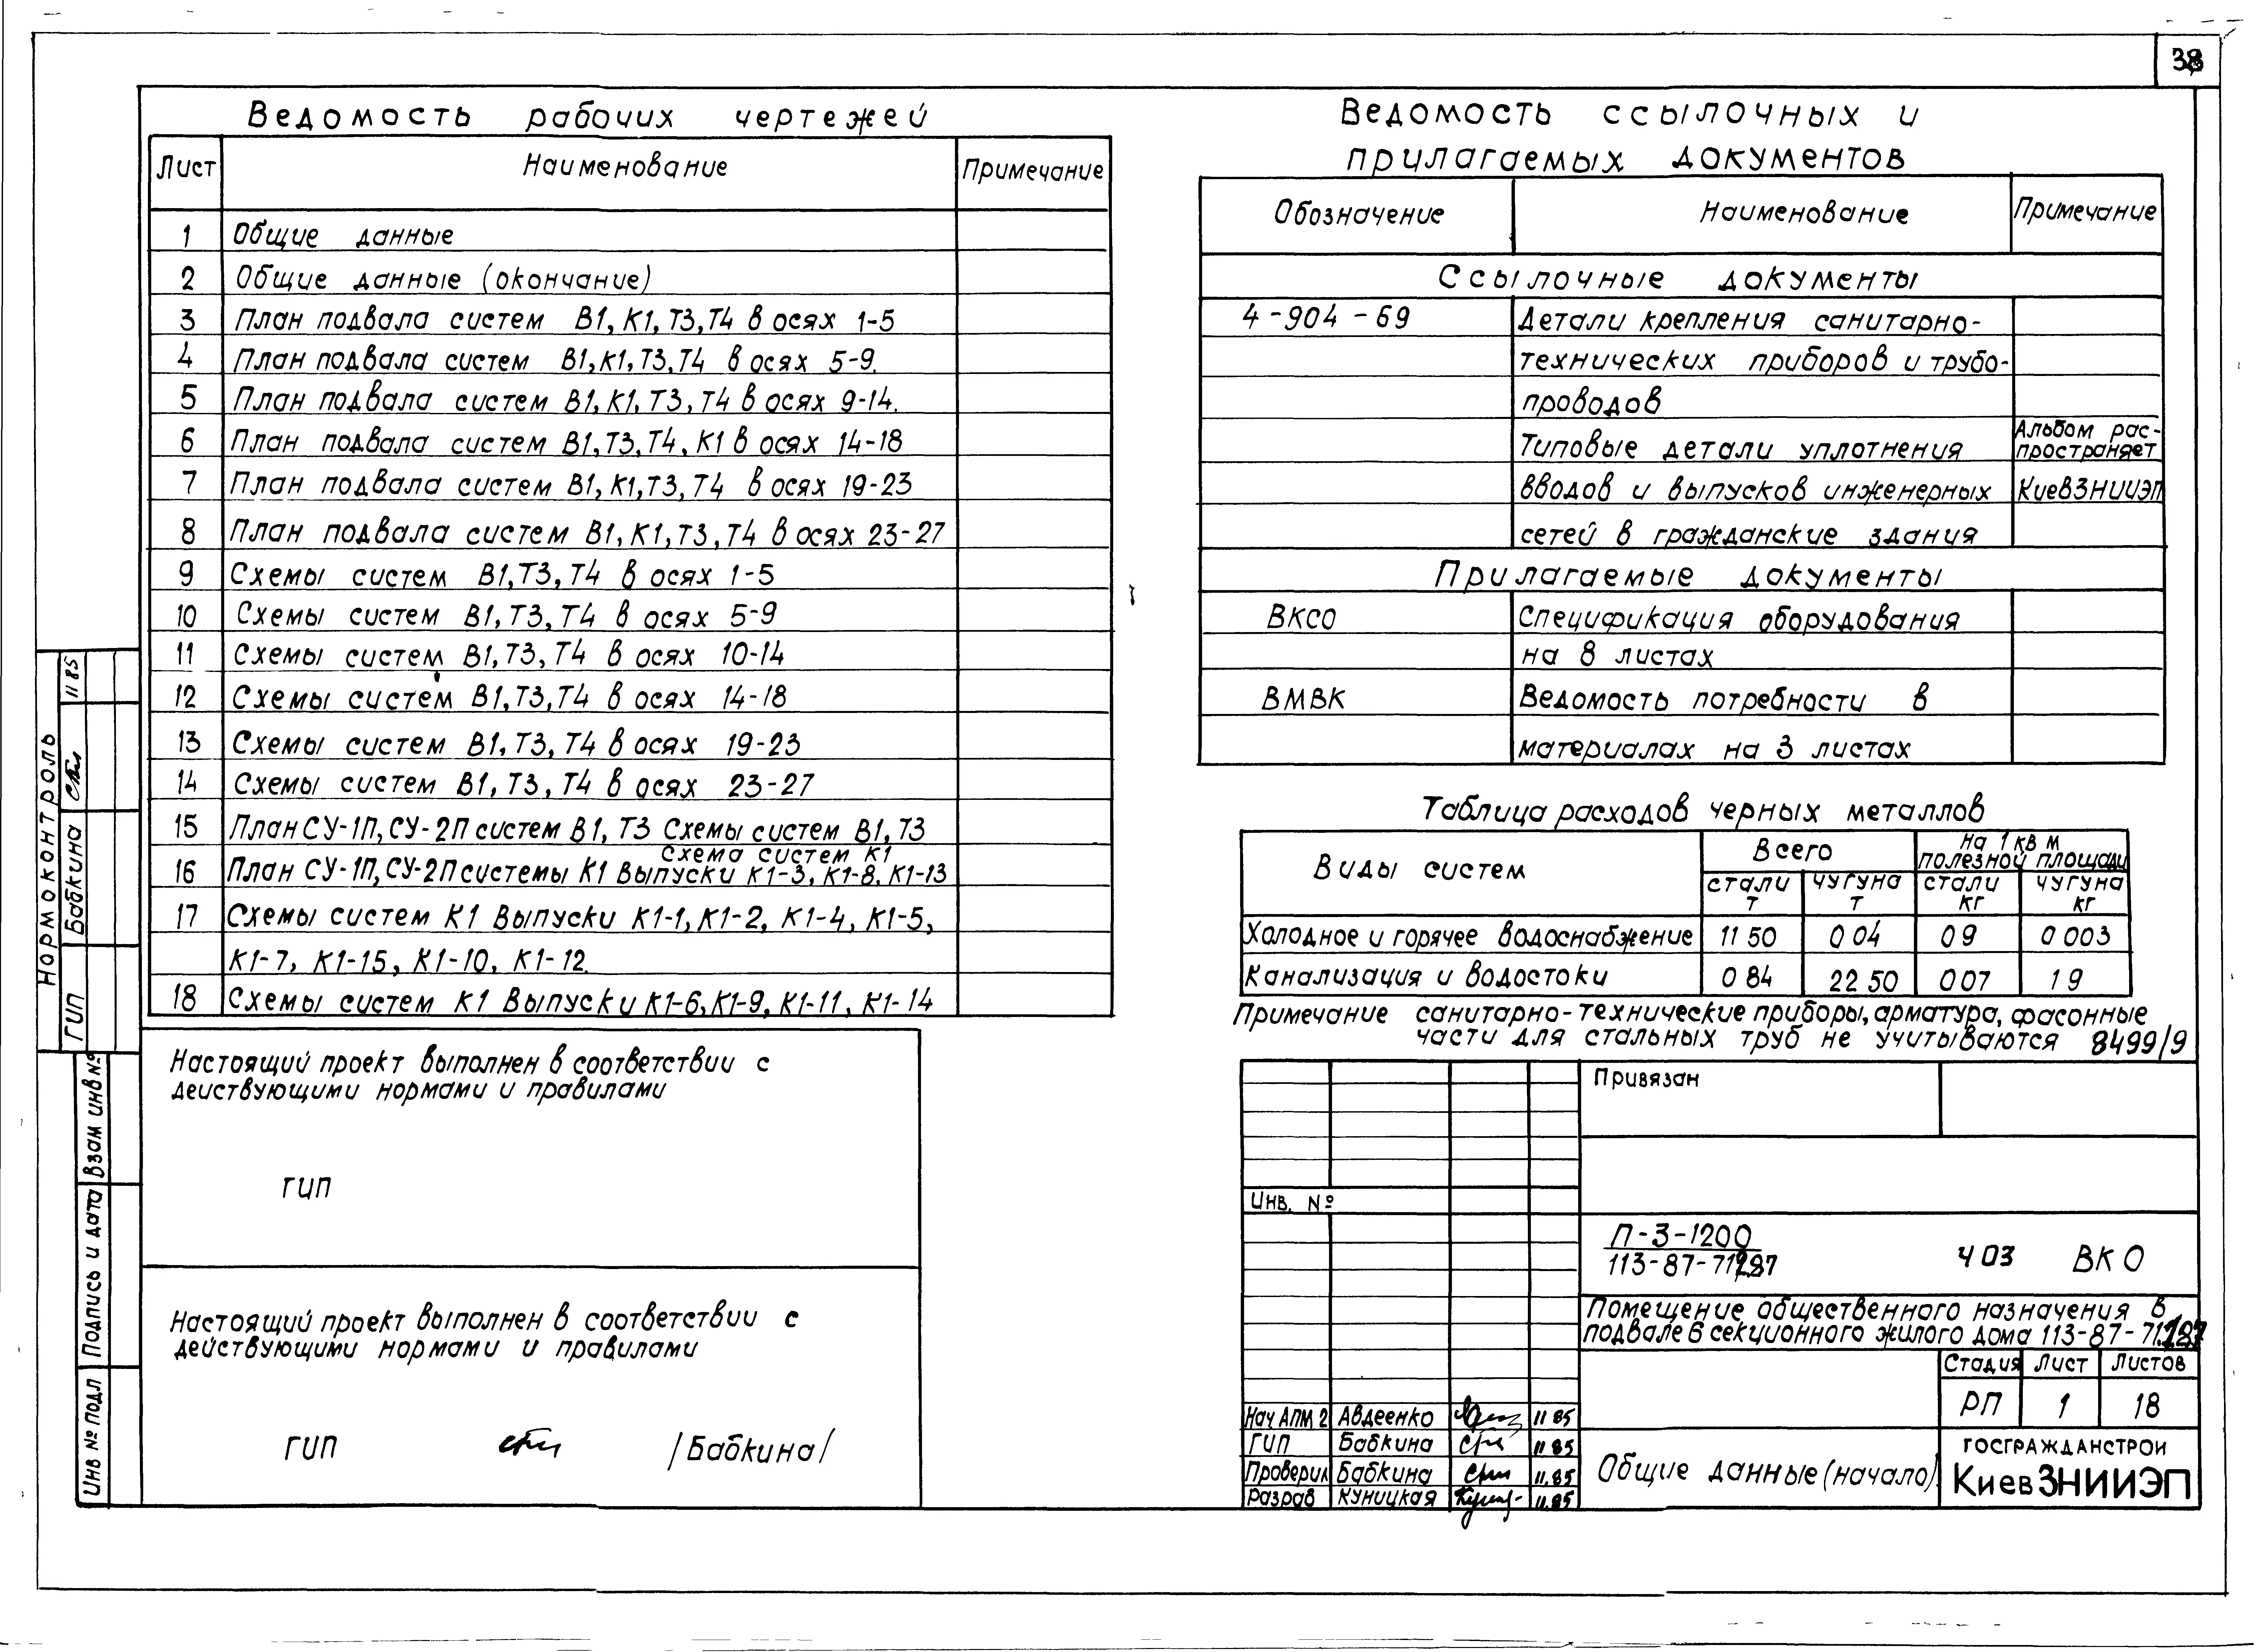 38
Ведомость рабочих чертежей
Лист Наименование Примечание
1 Общие данные
2 Общие данные (окончание)
3 План подвала систем В1, К1, Т3, Т4 в осях 1-5
4 План подвала систем В1, К1, Т3, Т4 в осях 5-9.
5 План подвала систем В1, К1, Т3, Т4 в осях 9-14.
6 План подвала систем В1, Т3, Т4, К1 в осях 14-18
7 План подвала систем В1, К1, Т3, Т4 в осях 19-23
8 План подвала систем В1, К1, Т3, Т4 в осях 23-27
9 Схемы систем В1, Т3, Т4 в осях 1-5
10 Схемы систем В1, Т3, Т4 в осях 5-9
11 Схемы систем В1, Т3, Т4 в осях 10-14
12 Схемы систем В1, Т3, Т4 в осях 14-18
13 Схемы систем В1, Т3, Т4 в осях 19-23
14 Схемы систем В1, Т3, Т4 в осях 23-27
15 План СУ-1П, СУ-2П систем В1, Т3 Схемы систем В1, Т3
Схема систем К1
16 План СУ-1П, СУ-2П системы К1 Выпуски К1-3, К1-8, К1-13
17 Схемы систем К1 Выпуски К1-1, К1-2, К1-4, К1-5,
К1-7, К1-15, К1-10, К1-12.
18 Схемы систем К1 Выпуски К1-6, К1-9, К1-11, К1-14
Настоящий проект выполнен в соответствии с
действующими нормами и правилами
ГИП
Настоящий проект выполнен в соответствии с
действующими нормами и правилами
ГИП /Бабкина/
Нормоконтроль
ГИП Бабкина 11 85
Взам инв №
Подпись и дата
Инв № подл
Ведомость ссылочных и
прилагаемых документов
Обозначение Наименование Примечание
Ссылочные документы
4-904-69 Детали крепления санитарно-
технических приборов и трубо-
проводов
Типовые детали уплотнения Альбом рас-
пространяет
вводов и выпусков инженерных КиевЗНИИЭП
сетей в гражданские здания
Прилагаемые документы
ВКСО Спецификация оборудования
на 8 листах
ВМВК Ведомость потребности в
материалах на 3 листах
Таблица расходов черных металлов
Виды систем Всего На 1 кв м
полезной площади
стали т чугуна т стали кг чугуна кг
Холодное и горячее водоснабжение 11 50 0 04 0 9 0 003
Канализация и водостоки 0 84 22 50 0 07 1 9
Примечание санитарно-технические приборы, арматура, фасонные
части для стальных труб не учитываются 8499/9
Привязан
Инв. №
П-3-1200
113-87-71 87
ч 03 ВК 0
Помещение общественного назначения в
подвале 6 секционного жилого дома 113-87-71. 87
Стадия Лист Листов
РП 1 18
Нач АПМ 2 Авдеенко 11 85
ГИП Бабкина 11 85
Проверил Бабкина 11.85
Разраб Куницкая 11.85
Общие данные (начало)
ГОСГРАЖДАНСТРОИ
КиевЗНИИЭП